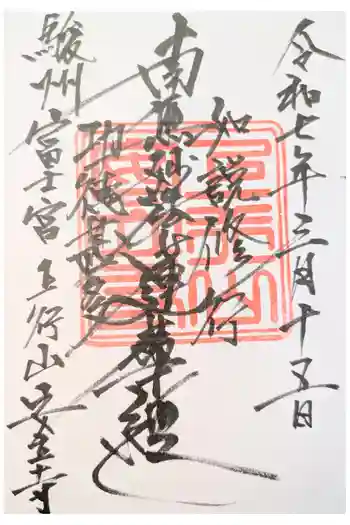 令和七年三月十五日
如説修行
南無妙法蓮華経
功徳甚多
駿州富士宮上行山